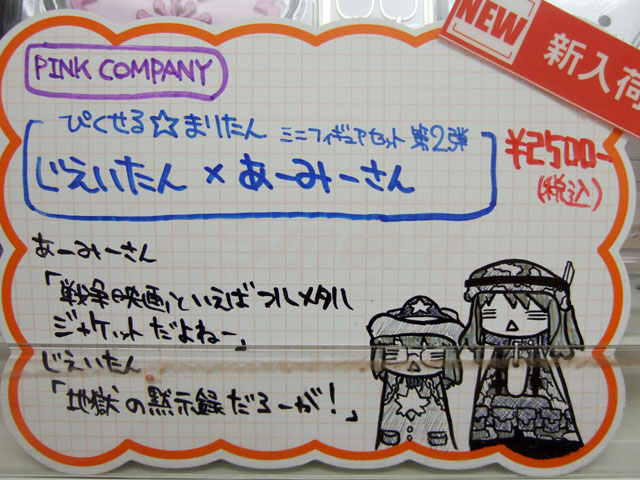 NEW
新入荷
PINK COMPANY
ぴくせる☆まりたん ミニフィギュアセット 第2弾
じえいたん × あーみーさん
¥2500-
(税込)
あーみーさん
「戦争映画」といえばフルメタル
ジャケットだよねー」
じえいたん
「地獄の黙示録だろーが!」